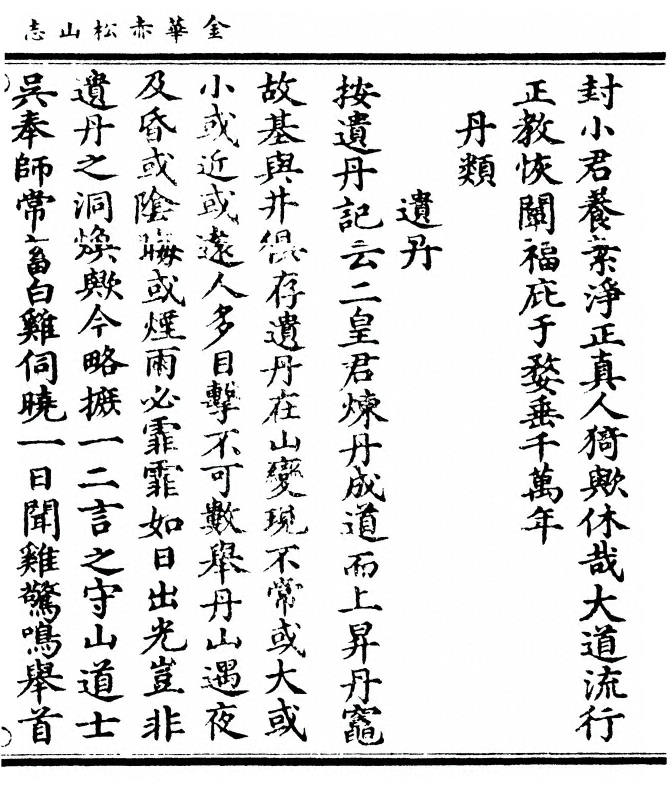 金華赤松山志
封小君養素淨正真人猗歟休哉大道流行
正教恢闡福庇于婺垂千萬年
丹類
遺丹
按遺丹記云二皇君煉丹成道而上昇丹竈
故基與井猥存遺丹在山變現不常或大或
小或近或遠人多目擊不可數舉丹山遇夜
及昏或陰晦或煙雨必霏霏如日出光豈非
遺丹之洞煥歟今略摭一二言之守山道士
吳奉師常畜白雞伺曉一日聞雞驚鳴舉首